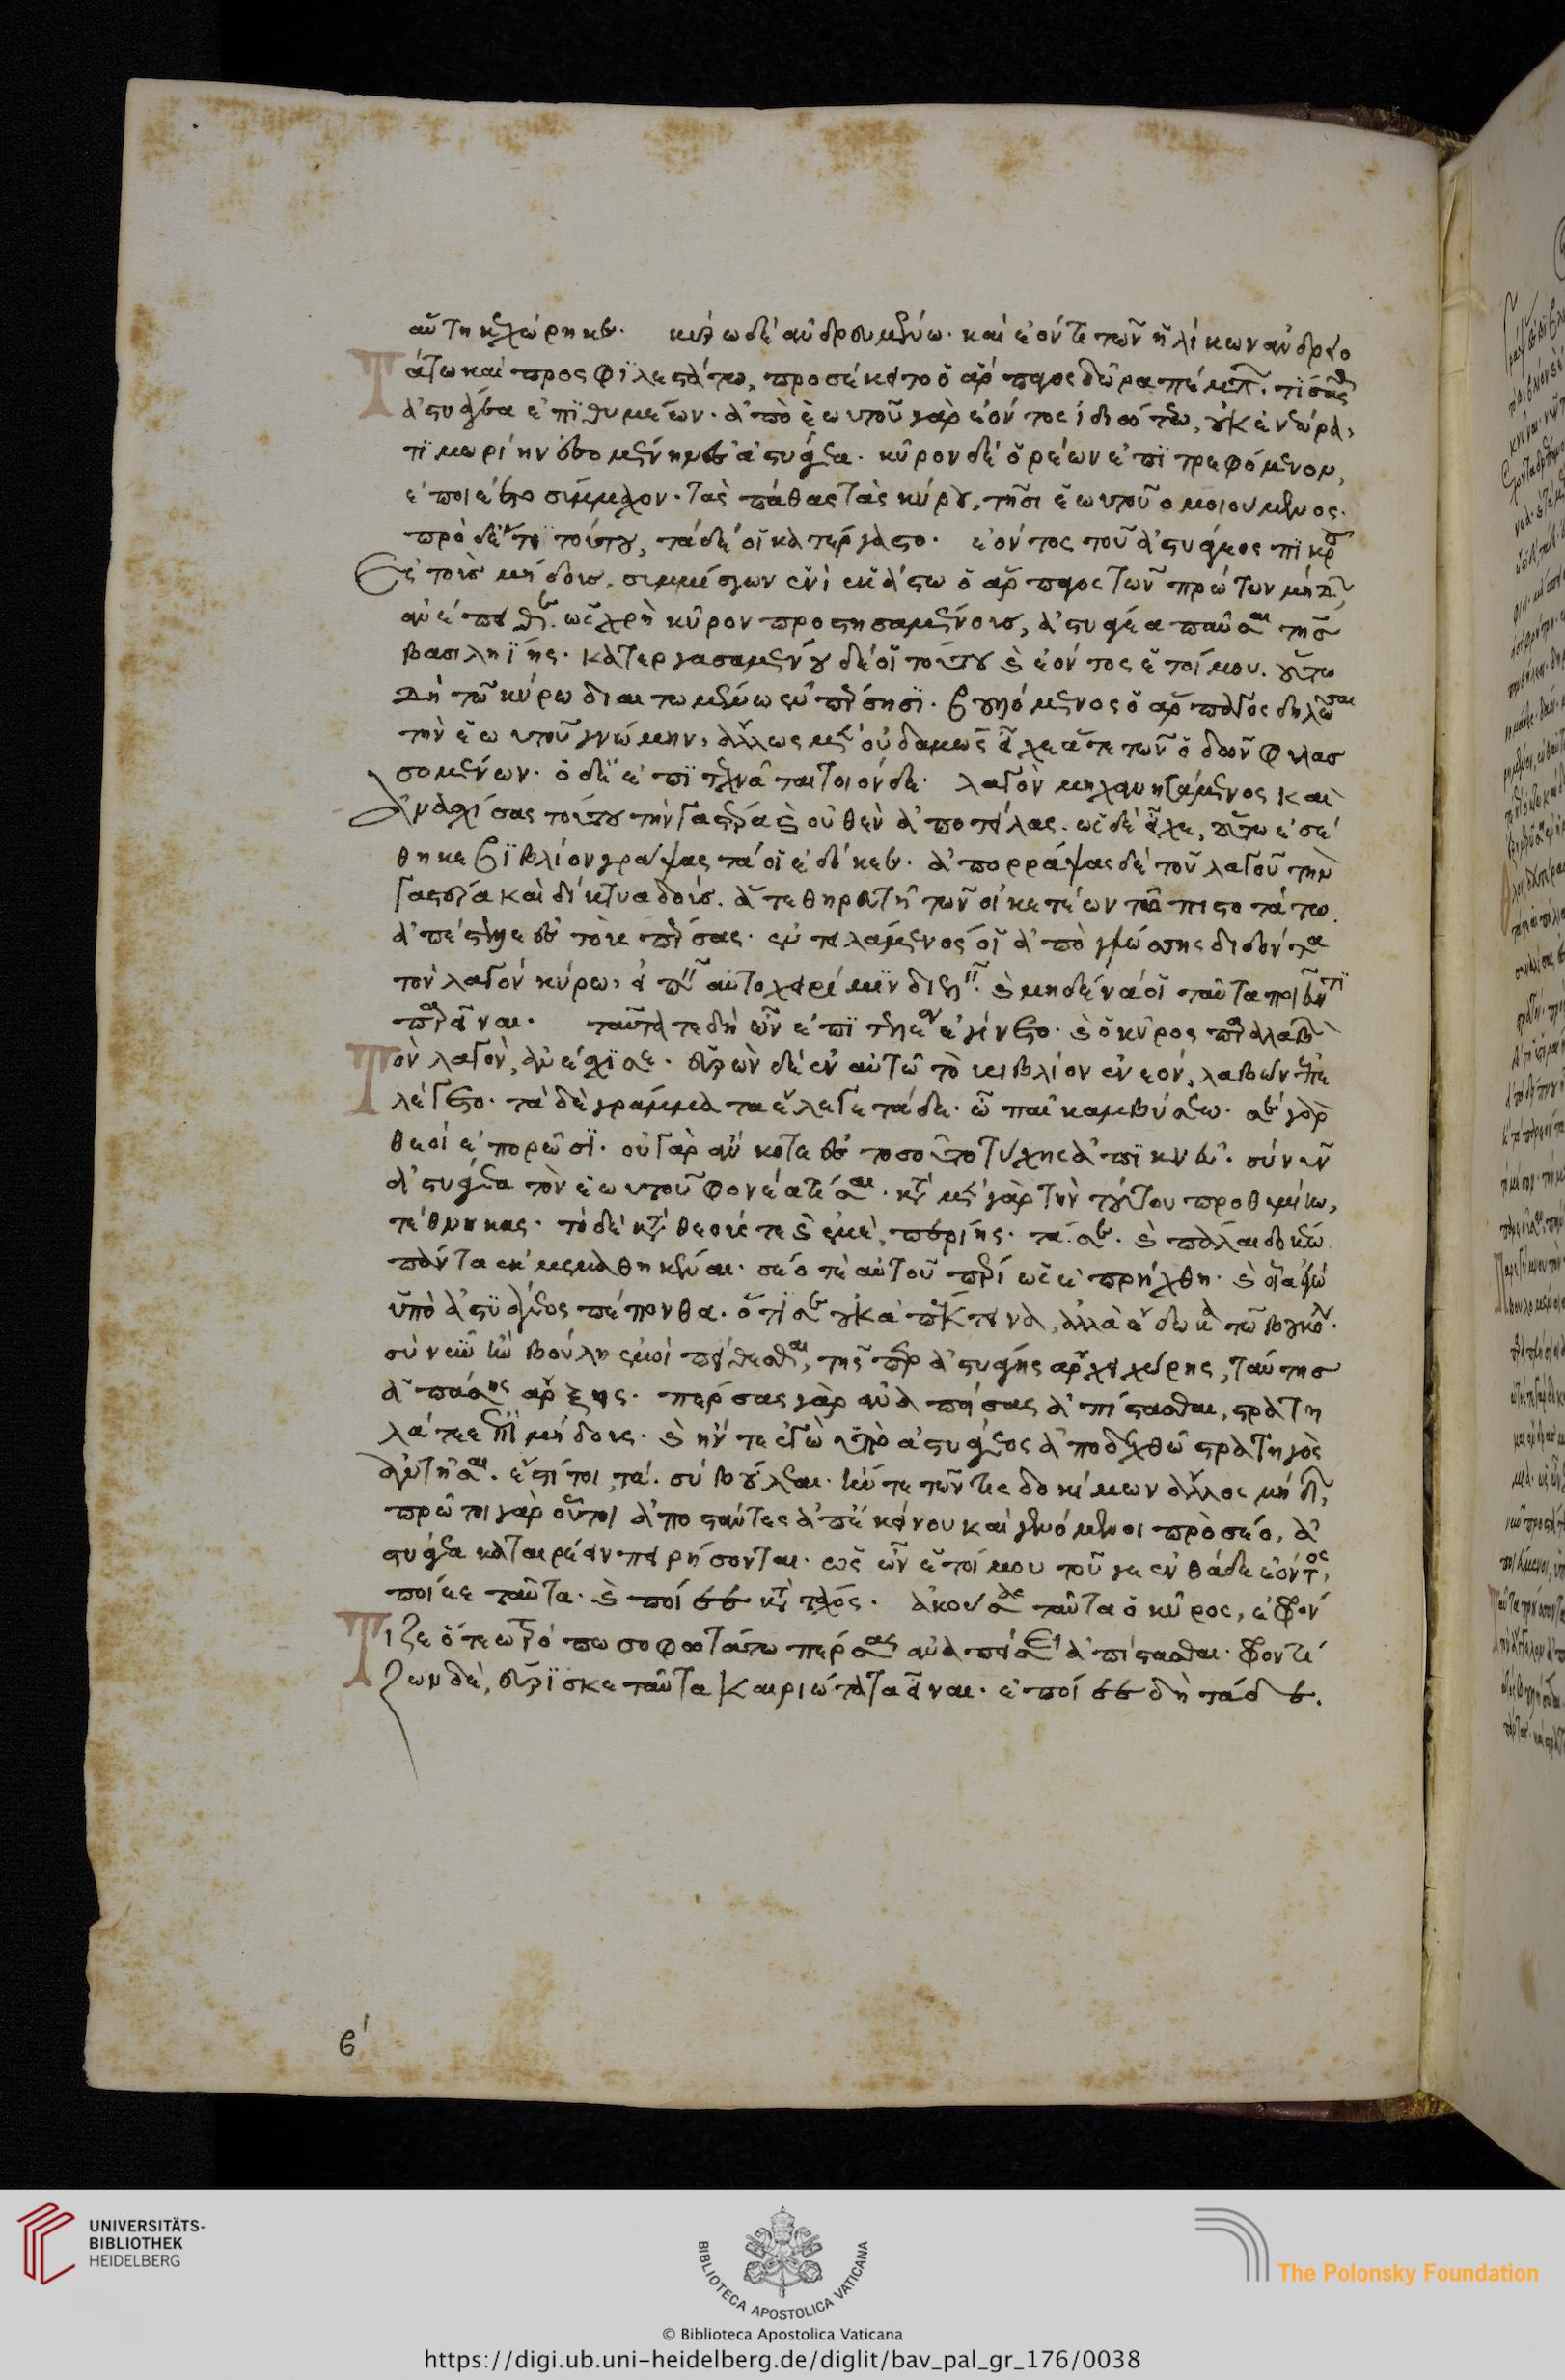 αὕτη κεχώρηκεν. κύρω δὲ ἀνδρουμένω. καὶ ἐόντι τῶν ἡλίκων ἀνδρειο
τάτω καὶ προσφιλεστάτω, προσέκειτο ὁ ἅρπαγος δῶρα πέμπων. τίσασθαι
ἀστυάγεα ἐπιθυμέων. ἀπὸ ἑωυτοῦ γὰρ ἐόντος ἰδιώτεω, οὐκ ἐνεώρα,
τιμωρίην ἐσομένην ἐς ἀστυάγεα. κῦρον δὲ ὁρέων ἐπιτρεφόμενον,
ἐποιέετο σύμμαχον. τὰς πάθας τὰς κύρου, τῆσι ἑωυτοῦ ὁμοιούμενος.
πρὸ δ' ἔτι τούτου, τάδέ οἱ κατέργαστο. ἐόντος τοῦ ἀστυάγεος πικροῦ
ἐς τοὺς μήδους, συμμίσγων ἑνὶ ἑκάστω ὁ ἅρπαγος τῶν πρώτων μήδων,
ἀνέπειθεν. ὡς χρὴ κῦρον προστησαμένους, ἀστυάγεα παῦσαι τῆς
βασιληίης. κατεργασμένου δέ οἱ τούτου καὶ ἐόντος ἑτοίμου. οὕτω
δὴ τῶ κύρω διαιτωμένω ἐν πέρσησι. βουλόμενος ὁ ἅρπαγος δηλῶσαι
τὴν ἑωυτοῦ γνώμην, ἄλλως μὲν οὐδαμῶς εἶχε ἅτε τῶν ὁδῶν φυλασ
σομένων. ὁ δὲ ἐπιτεχνᾶται τοιόνδε. λαγὸν μηχανησάμενος καὶ
ἀνασχίσας τούτου τὴν γαστέρα καὶ οὐθὲν ἀποτίλας. ὡς δὲ εἶχε, οὕτω ἐσέ
θηκε βιβλίον γράψας τά οἱ ἐδόκεεν. ἀπορράψας δὲ τοῦ λαγοῦ τὴν
γαστέρα καὶ δίκτυα δούς. ἅτε θηρευτῆ τῶν οἰκετέων τῶ πιστοτάτω.
ἀπέστελλε ἐς τοὺς πέρσας. ἐντειλάμενός οἱ ἀπὸ γλώσσης διδόντα
τὸν λαγὸν κύρω, ἐπειπεῖν αὐτοχειρί μιν διελεῖν. καὶ μηδένα οἱ ταῦτα ποιεῦντι
παρεῖναι. ταῦτά τε δὴ ὦν ἐπιτελέα ἐγίνετο. καὶ ὁ κῦρος παραλαβὼν
τὸν λαγὸν, ἀνέσχισε. εὑρὼν δὲ ἐν αὐτῶ τὸ βιβλίον ἐνεὸν, λαβὼν ἐπε
λέγετο. τὰ δὲ γράμματα ἔλεγε τάδε. ὦ παῖ καμβύσεω. σὲ γὰρ
θεοὶ ἐπορῶσι. οὐ γὰρ ἄν κοτε ἐς τοσοῦτο τύχης ἀπίκευ. σύ νυν
ἀστυάγεα τὸν ἑωυτοῦ φονέα τίσαι. κατὰ μὲν γὰρ τὴν τούτου προθυμίην,
τέθνηκας. τὸ δὲ κατὰ θεούς τε καὶ ἐμὲ, περίεις. τά σε. καὶ πάλαι δοκέω
πάντα ἐκμεμαθηκέναι. σέο τε αὐτοῦ πέρι ὡς ἐπρήχθη. καὶ οἷα ἐγὼ
ὑπὸ ἀστυάγεος πέπονθα. ὅτι σε οὐκ ἀπέκτεινα, ἀλλὰ ἔδωκα τῶ βουκόλω.
σύ νυν ἢν βούλη ἐμοὶ πείθεσθαι, τῆς περ ἀστυάγης ἄρχει χώρης, ταύτης
ἁπάσης ἄρξεις. πέρσας γὰρ ἀναπείσας ἀπίστασθαι, στρατη
λάτεε ἐπὶ μήδους. καὶ ἤν τε ἐγὼ ὑπὸ ἀστυάγεος ἀποδεχθῶ στρατηγὸς
ἀντία σεῦ. ἔστι τοι, τὰ. σὺ βούλεαι. ἤν τε τῶν τις δοκίμων ἄλλος μήδων,
πρῶτοι γὰρ οὗτοι ἀποστάντες ἀπ' ἐκείνου καὶ γενόμενοι πρὸς σέο, ἀ
στυάγεα καταιρέειν πειρήσονται. ὡς ὦν ἑτοίμου τοῦ γε ἐνθάδε ἐόντος,
ποίεε ταῦτα. καὶ ποίεε κατὰ τάχος. ἀκούσας ταῦτα ὁ κῦρος, ἐφρόν
τιζε ὅτεω τρόπω σοφωτάτω πέρσας ἀναπείσει ἀπίστασθαι. φροντί
ζων δὲ, εὑρίσκε ταῦτα καιριώτατα εἶναι. ἐποίεε δὴ τάδε.
β'
UNIVERSITÄTS-
BIBLIOTHEK
HEIDELBERG
BIBLIOTECA APOSTOLICA VATICANA
The Polonsky Foundation
© Biblioteca Apostolica Vaticana
https://digi.ub.uni-heidelberg.de/diglit/bav_pal_gr_176/0038